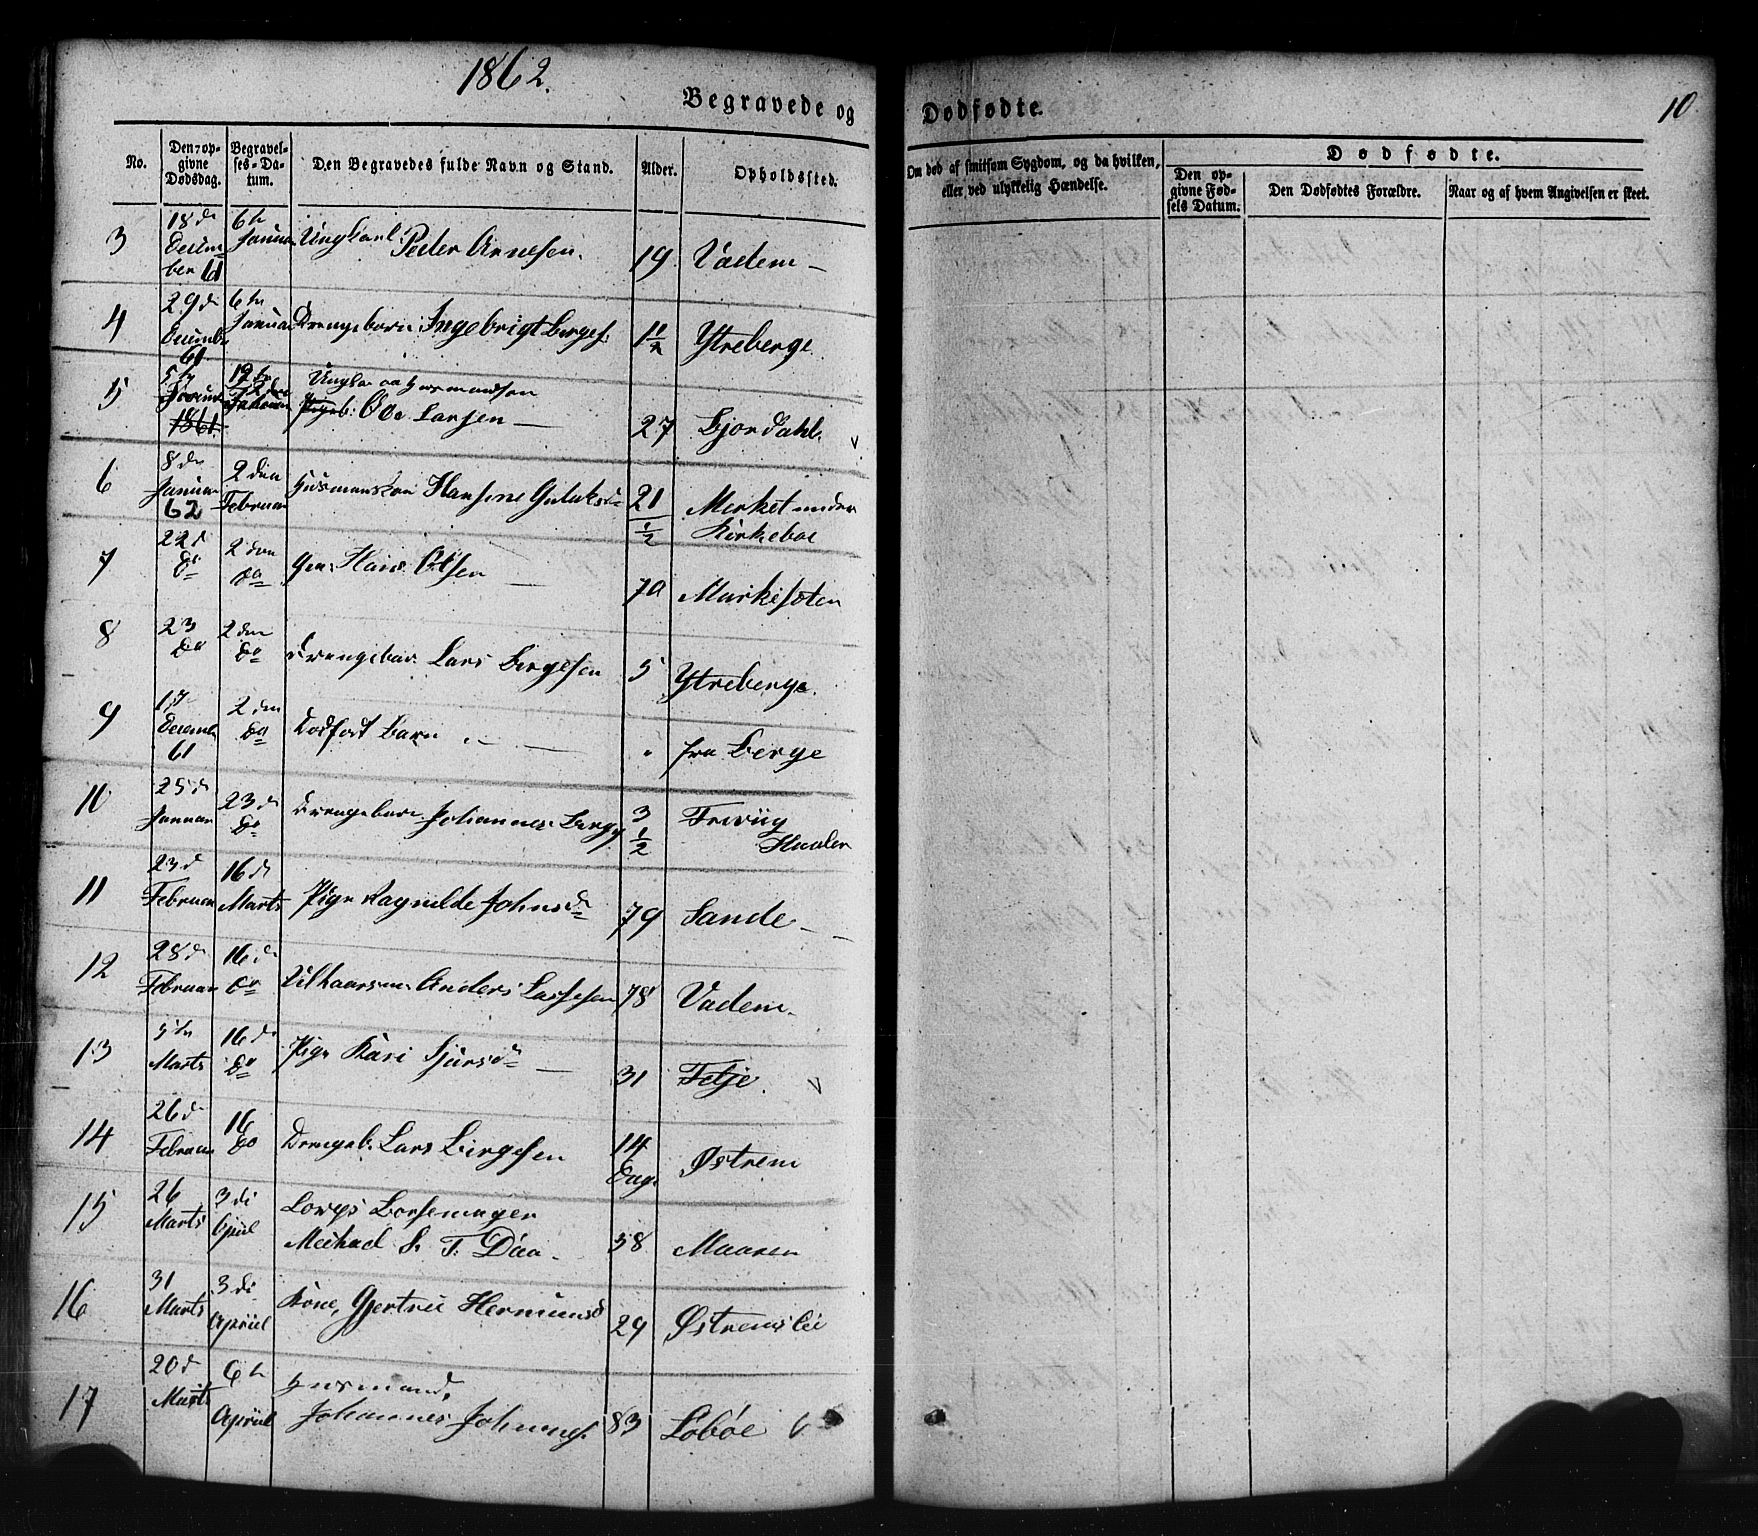 1862.
Begravede og
Dødfødte.
10.
No.
Den opgivne Dødsdag.
Begravelses-Datum.
Den Begravedes fulde Navn og Stand.
Alder.
Opholdssted.
Om død af smitsom Sygdom, og da hvilken,
eller ved ulykkelig Hændelse.
Dødfødte.
Den opgivne Fødsels Datum.
Den Dødfødtes Forældre.
Naar og af hvem Angivelsen er skeet.
3 18de December 61 6te Januar Ungkarl Peder Arnesen. 19 Vadem
4 29de December 61 6te Januar Drengebarn Ingebrigt Bergs. 1 1/2 Ytreberge
5 Januar 1861 Februar Ungkar og Husmandsøn
Pigeb: Ole Larsen 27 Bjordahl. v
6 8de Januar 62 2den Februar Husmandskone Hansine 21 1/2 Merket under
Kirkeboe
7 22d do 2den do Hans Olsen 70 Markesøten
8 23 do 2den do Drengebar Lars Bergesen 5 Ytreberge.
9 17 December 61 2den do Dødfødt Barn " fra Berge
10 25d Januar 23d do Drengebarn Johannes 3 1/2
11 23d Februar 16d Marts Pige Ragnilde Johnsd 79 Sande
12 28d Februar 16d do Anders Lassesen 78 Vadem
13 5te Marts 16d do Pige Kari Sjursd 31 Tetje v
14 26d Februar 16 do Drengeb. Lars Bergesen 14 Dage Østrem
15 26 Marts 3di April
Michael S. T. Daa 58 Maaren
16 31 Marts 3di April Kone, Gjertrue Hermunsd 29 Østremslie
17 20d Marts 6te April Husmand,
Johannes Johannes. 83 Løbøe